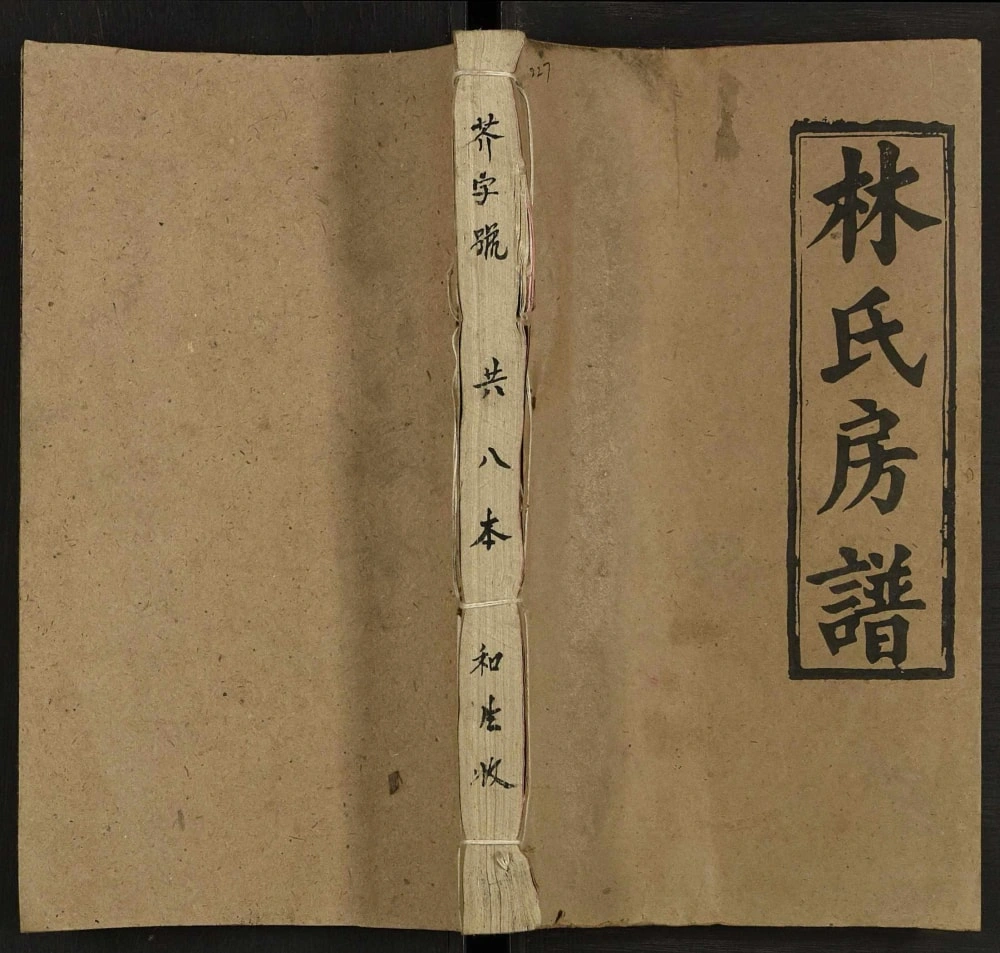 林氏房譜
芥字號 共八本 和生收
227